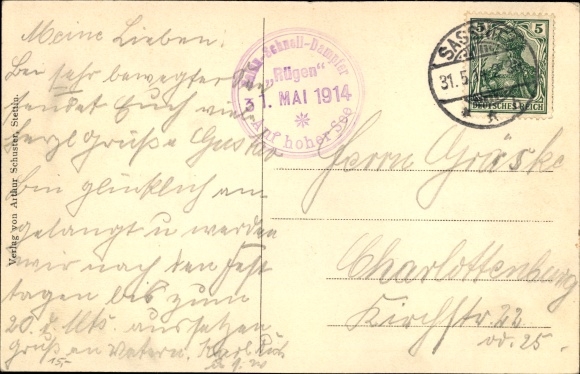 Meine Lieben.
Bei sehr bewegter See
sendet Euch viele
herzl Grüße
bin glücklich an
gelangt u werden
wir nach den Fest
tagen bis zum
20. d. Mts. aussetzen
Gruß an Vatern. Karl
Verlag von Arthur Schuster, Stettin.
Schnell-Dampfer
„Rügen"
31. MAI 1914
Auf hoher See
SASSNITZ
31.5
5
DEUTSCHES REICH
Herrn Gräske
Charlottenburg
Kirchstr. 22
od. 25.
15.-